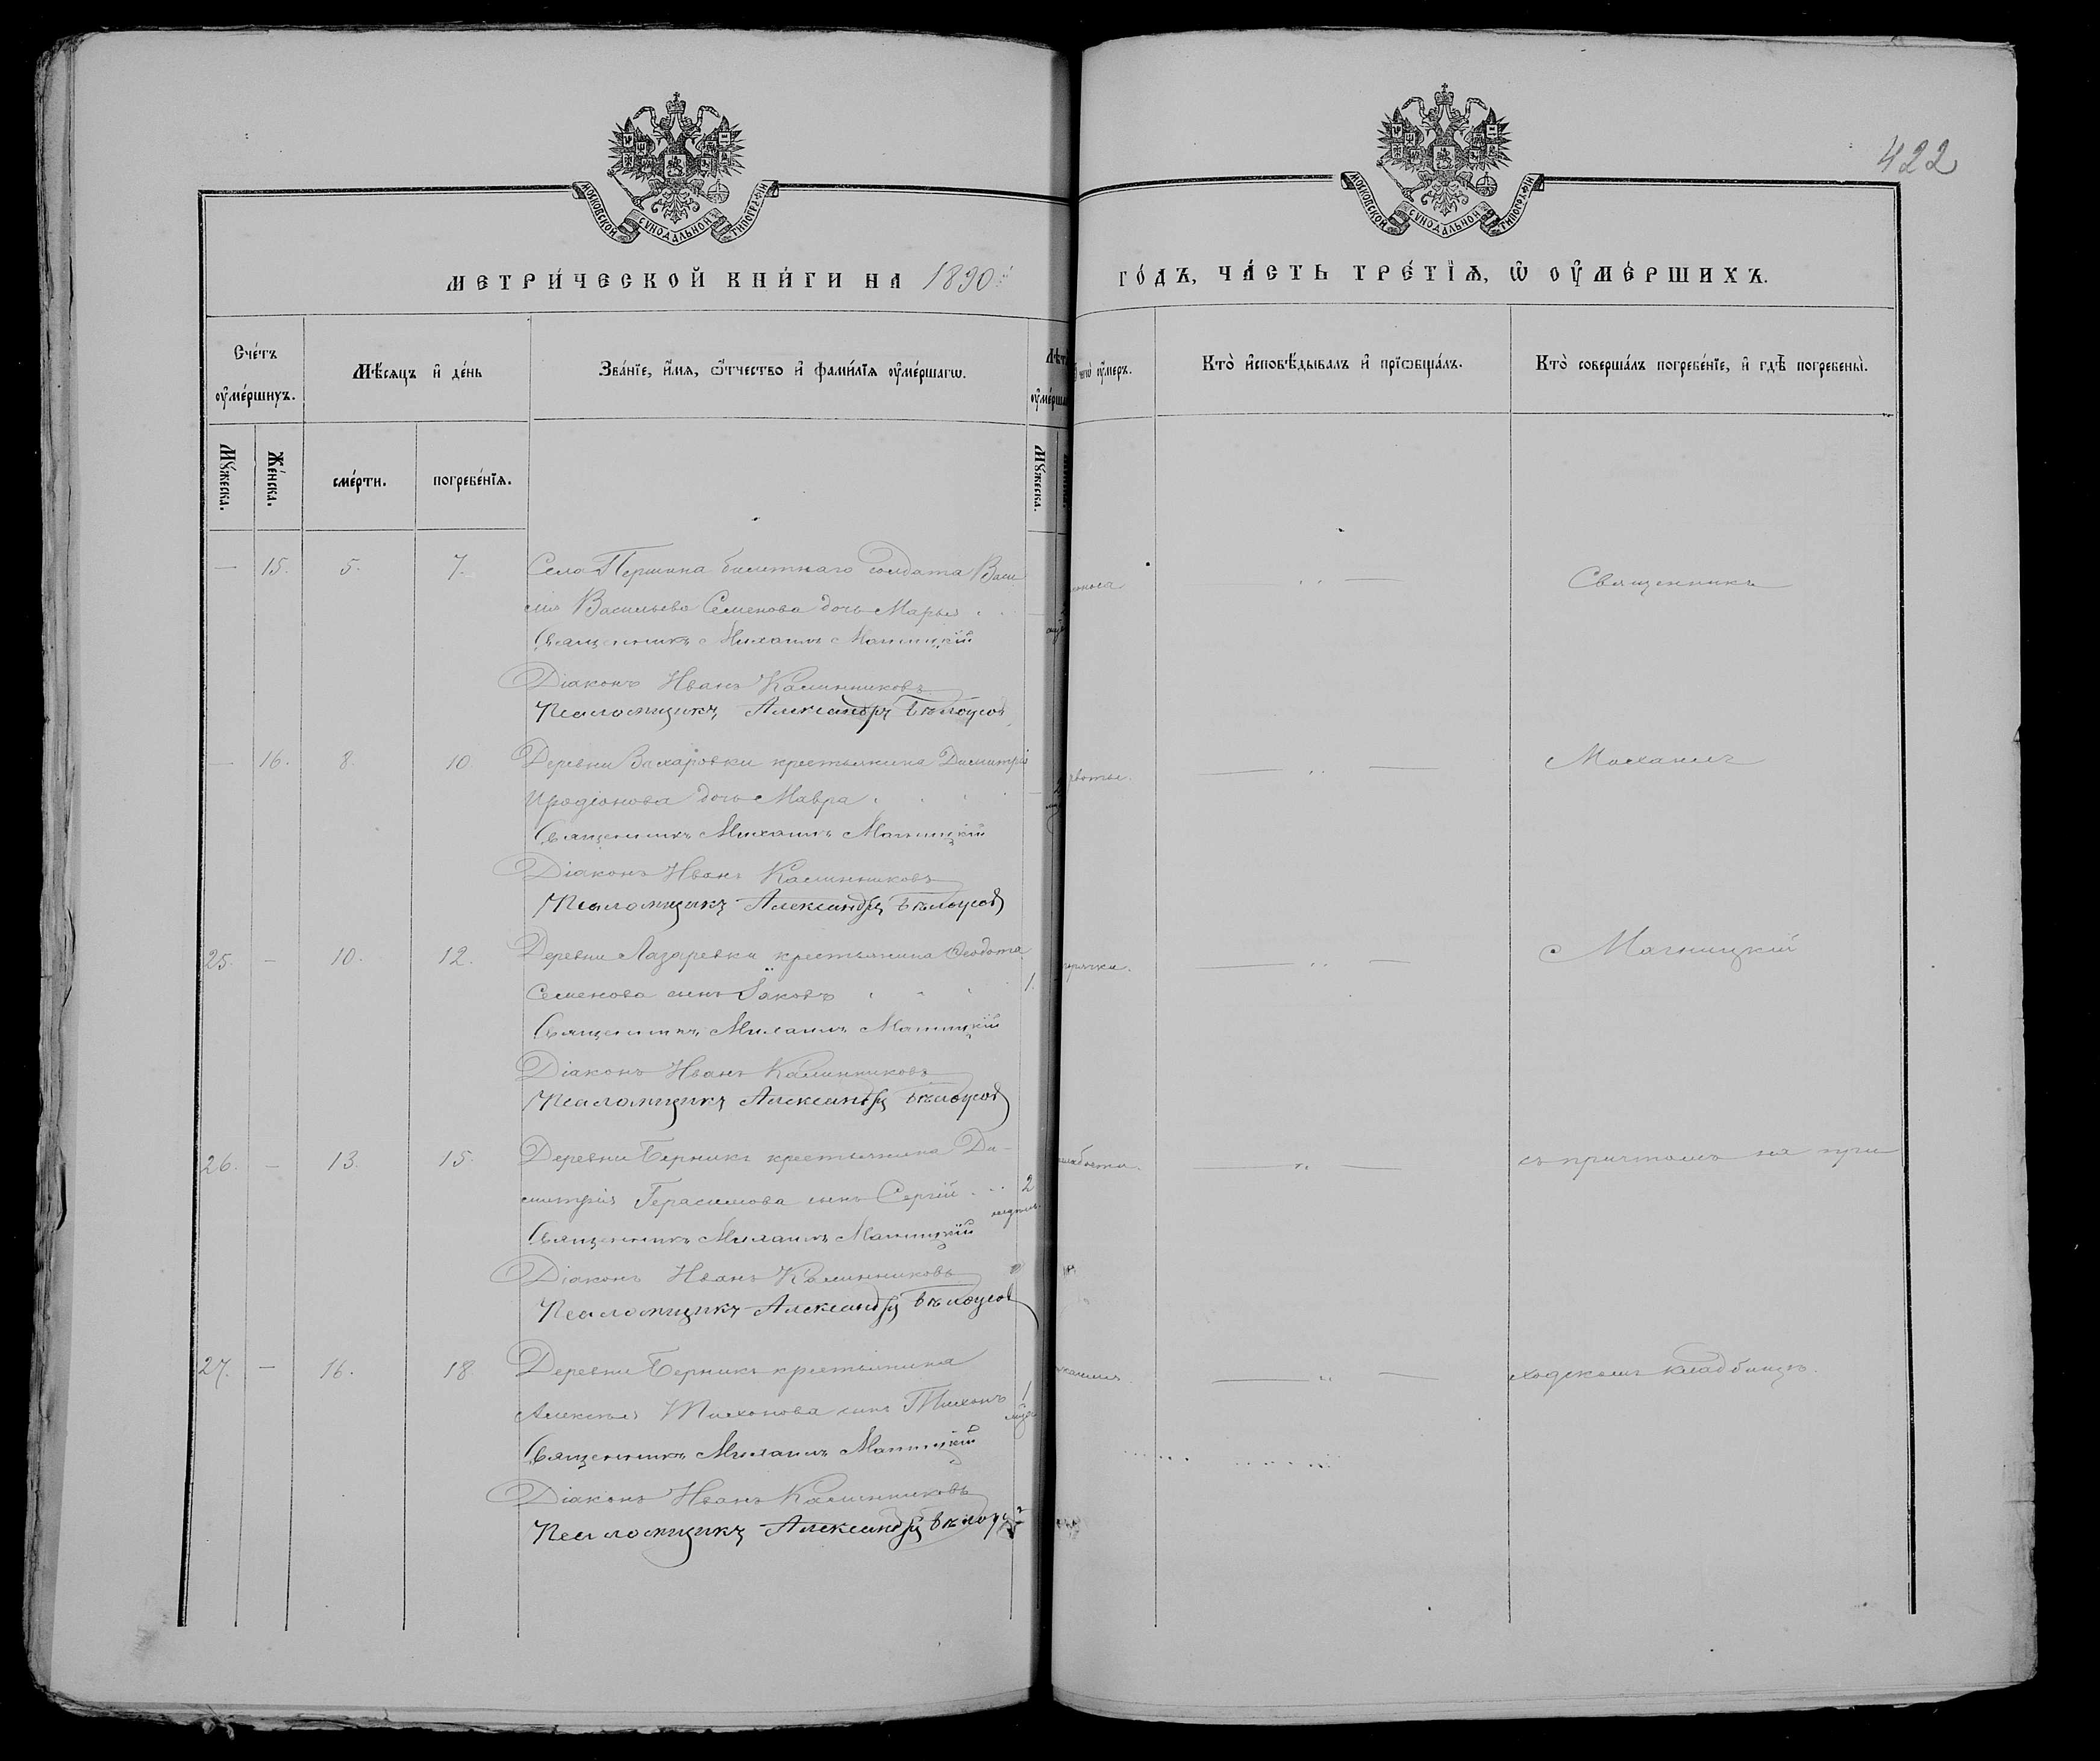 МОСКОВСКОЙ СѴНОДАЛЬНОЙ ТИПОГРАФІИ
МОСКОВСКОЙ СѴНОДАЛЬНОЙ ТИПОГРАФІИ
422
МЕТРИ́ЧЕСКОЙ КНИ́ГИ НА 1890
ГО́ДЪ, ЧА́СТЬ ТРЕ́ТІѦ, Ѡ҆ ОУ҆МЕ́РШИХЪ.
Сче́тъ оу҆ме́ршихъ.
Мѣ́сяцъ и҆ де́нь
Зва́нїе, и҆́мѧ, ѻ҆́тчество и҆ фами́лїѧ оу҆ме́ршагѡ.
Кто̀ и҆сповѣ́дывалъ и҆ прїѡбща́лъ.
Кто̀ соверша́лъ погребе́нїе, и҆ гдѣ̀ погребены̀.
Мꙋ́жеска.
Же́нска.
сме́рти.
погребе́нїѧ.
Мꙋ́жеска.
— 15. 5. 7. Села Першина билетнаго солдата Васи
лія Васильева Семенова дочь Марья
Священникъ Михаилъ Магницкій
Діаконъ Иванъ Калинниковъ
Псаломщикъ Александръ Бѣлоусов
Священникъ
— 16. 8. 10. Деревни Захаровки крестьянина Димитрія
Иродіонова дочь Мавра
Священникъ Михаилъ Магницкій
Діаконъ Иванъ Калинниковъ
Псаломщикъ Александръ Бѣлоусов
Михаилъ
25. — 10. 12. Деревни Лазаревки крестьянина Ѳеодота
Семенова сынъ Іаковъ 1.
Священникъ Михаилъ Магницкій
Діаконъ Иванъ Калинниковъ
Псаломщикъ Александръ Бѣлоусов
Магницкій
26. — 13. 15. Деревни Берникъ крестьянина Ди-
митрія Герасимова сынъ Сергій 2
недѣль.
Священникъ Михаилъ Магницкій
Діаконъ Иванъ Калинниковъ
Псаломщикъ Александръ Бѣлоусов
съ причтомъ на при
27. — 16. 18 Деревни Берникъ крестьянина
Алексѣя Тихонова сынъ Тихонъ 1
Священникъ Михаилъ Магницкій
Діаконъ Иванъ Калинниковъ
Псаломщикъ Александръ Бѣлоусов
ходскомъ кладбищѣ.